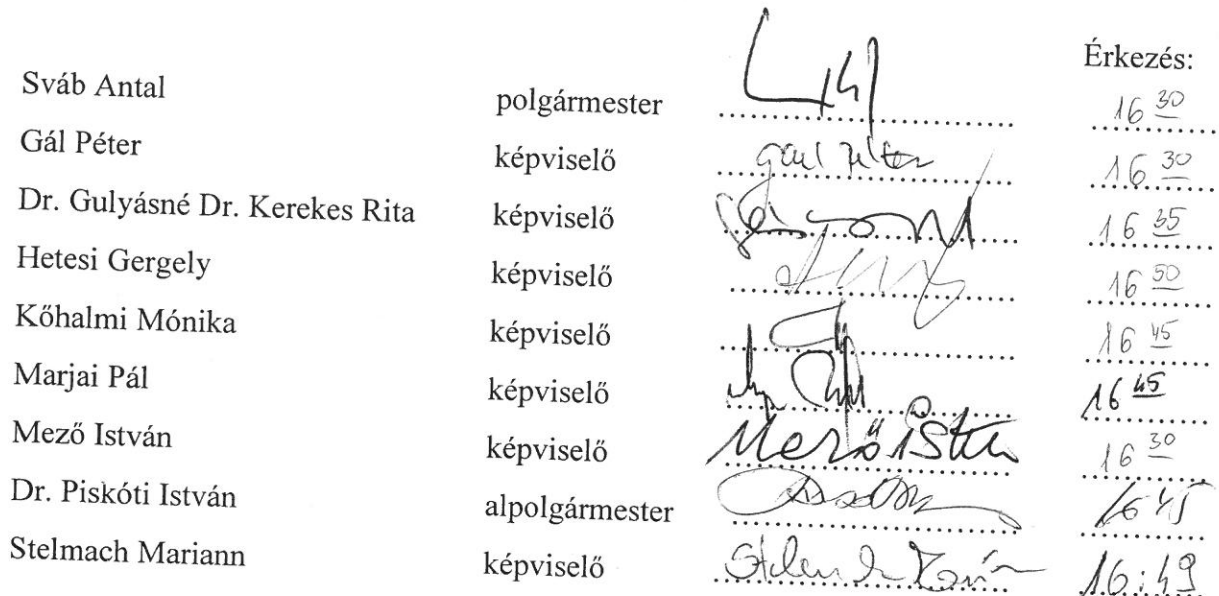 Érkezés:
Sváb Antal polgármester 16 30
Gál Péter képviselő gál péter 16 30
Dr. Gulyásné Dr. Kerekes Rita képviselő 16 35
Hetesi Gergely képviselő 16 50
Kőhalmi Mónika képviselő 16 45
Marjai Pál képviselő 16 45
Mező István képviselő Mező István 16 30
Dr. Piskóti István alpolgármester 16 45
Stelmach Mariann képviselő 16:49